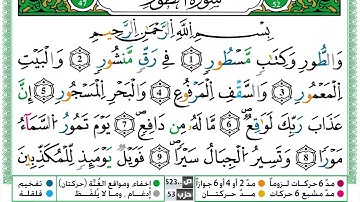 سورة الطور
52
47
بِسْمِ اللَّهِ الرَّحْمَٰنِ الرَّحِيمِ
وَالطُّورِ ۝1 وَكِتَابٍ مَّسْطُورٍ ۝2 فِي رَقٍّ مَّنشُورٍ ۝3 وَالْبَيْتِ
الْمَعْمُورِ ۝4 وَالسَّقْفِ الْمَرْفُوعِ ۝5 وَالْبَحْرِ الْمَسْجُورِ ۝6 إِنَّ
عَذَابَ رَبِّكَ لَوَاقِعٌ ۝7 مَّا لَهُ مِن دَافِعٍ ۝8 يَوْمَ تَمُورُ السَّمَاءُ
مَوْرًا ۝9 وَتَسِيرُ الْجِبَالُ سَيْرًا ۝10 فَوَيْلٌ يَوْمَئِذٍ لِّلْمُكَذِّبِينَ
مدّ 6 حركات لزوماً مدّ 2 أو 4 أو 6 جوازاً ص 523 إخفاء ومواقع الغُنَّة (حركتان) تفخيم
مدّ مشبع 6 حركات مدّ حركتان حزب 53 إدغام . وما لا يُلفَظ قلقلة